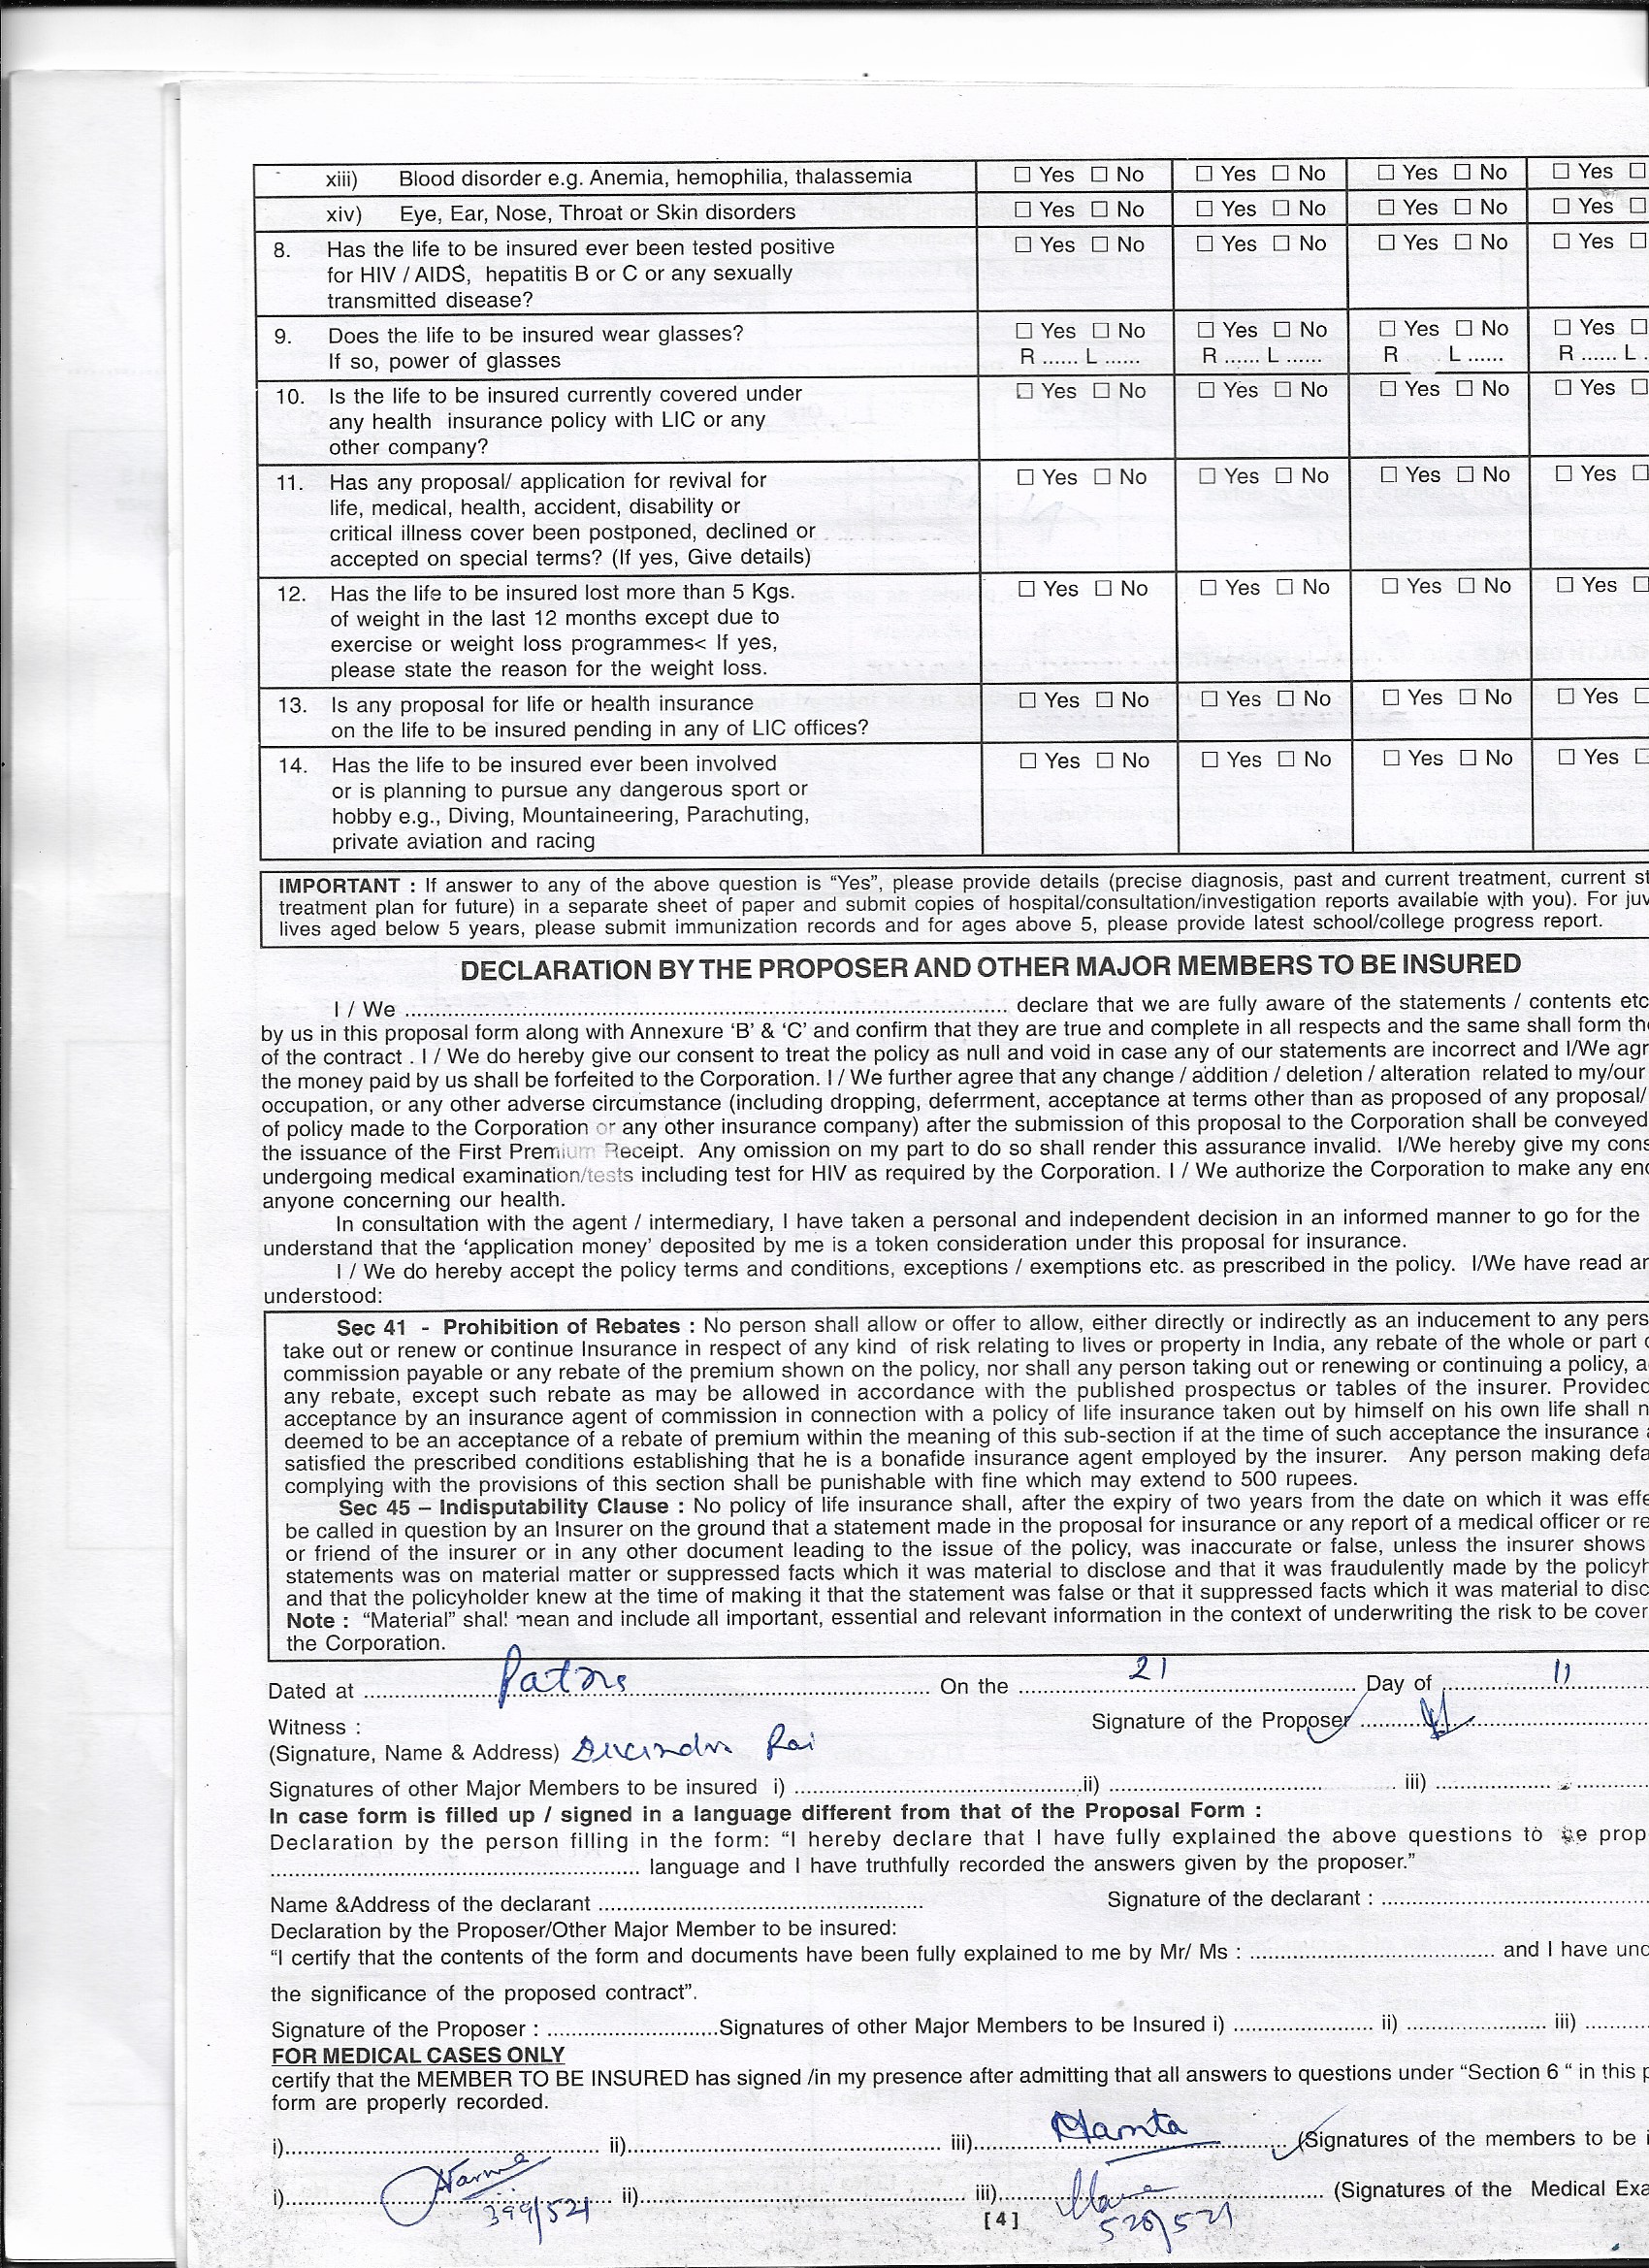 xiii) Blood disorder e.g. Anemia, hemophilia, thalassemia ☐ Yes ☐ No ☐ Yes ☐ No ☐ Yes ☐ No ☐ Yes ☐
xiv) Eye, Ear, Nose, Throat or Skin disorders ☐ Yes ☐ No ☐ Yes ☐ No ☐ Yes ☐ No ☐ Yes ☐
8. Has the life to be insured ever been tested positive ☐ Yes ☐ No ☐ Yes ☐ No ☐ Yes ☐ No ☐ Yes ☐
for HIV / AIDS, hepatitis B or C or any sexually
transmitted disease?
9. Does the life to be insured wear glasses? ☐ Yes ☐ No ☐ Yes ☐ No ☐ Yes ☐ No ☐ Yes ☐
If so, power of glasses R ...... L ...... R ...... L ...... R L ...... R ...... L .
10. Is the life to be insured currently covered under ☐ Yes ☐ No ☐ Yes ☐ No ☐ Yes ☐ No ☐ Yes ☐
any health insurance policy with LIC or any
other company?
11. Has any proposal/ application for revival for ☐ Yes ☐ No ☐ Yes ☐ No ☐ Yes ☐ No ☐ Yes ☐
life, medical, health, accident, disability or
critical illness cover been postponed, declined or
accepted on special terms? (If yes, Give details)
12. Has the life to be insured lost more than 5 Kgs. ☐ Yes ☐ No ☐ Yes ☐ No ☐ Yes ☐ No ☐ Yes ☐
of weight in the last 12 months except due to
exercise or weight loss programmes< If yes,
please state the reason for the weight loss.
13. Is any proposal for life or health insurance ☐ Yes ☐ No ☐ Yes ☐ No ☐ Yes ☐ No ☐ Yes ☐
on the life to be insured pending in any of LIC offices?
14. Has the life to be insured ever been involved ☐ Yes ☐ No ☐ Yes ☐ No ☐ Yes ☐ No ☐ Yes ☐
or is planning to pursue any dangerous sport or
hobby e.g., Diving, Mountaineering, Parachuting,
private aviation and racing
IMPORTANT : If answer to any of the above question is “Yes”, please provide details (precise diagnosis, past and current treatment, current st
treatment plan for future) in a separate sheet of paper and submit copies of hospital/consultation/investigation reports available with you). For juv
lives aged below 5 years, please submit immunization records and for ages above 5, please provide latest school/college progress report.
DECLARATION BY THE PROPOSER AND OTHER MAJOR MEMBERS TO BE INSURED
I / We .................... declare that we are fully aware of the statements / contents etc
by us in this proposal form along with Annexure ‘B’ & ‘C’ and confirm that they are true and complete in all respects and the same shall form the
of the contract . I / We do hereby give our consent to treat the policy as null and void in case any of our statements are incorrect and I/We agr
the money paid by us shall be forfeited to the Corporation. I / We further agree that any change / addition / deletion / alteration related to my/our
occupation, or any other adverse circumstance (including dropping, deferrment, acceptance at terms other than as proposed of any proposal/
of policy made to the Corporation or any other insurance company) after the submission of this proposal to the Corporation shall be conveyed
the issuance of the First Premium Receipt. Any omission on my part to do so shall render this assurance invalid. I/We hereby give my cons
undergoing medical examination/tests including test for HIV as required by the Corporation. I / We authorize the Corporation to make any enq
anyone concerning our health.
In consultation with the agent / intermediary, I have taken a personal and independent decision in an informed manner to go for the
understand that the ‘application money’ deposited by me is a token consideration under this proposal for insurance.
I / We do hereby accept the policy terms and conditions, exceptions / exemptions etc. as prescribed in the policy. I/We have read an
understood:
Sec 41 - Prohibition of Rebates : No person shall allow or offer to allow, either directly or indirectly as an inducement to any pers
take out or renew or continue Insurance in respect of any kind of risk relating to lives or property in India, any rebate of the whole or part o
commission payable or any rebate of the premium shown on the policy, nor shall any person taking out or renewing or continuing a policy, a
any rebate, except such rebate as may be allowed in accordance with the published prospectus or tables of the insurer. Provided
acceptance by an insurance agent of commission in connection with a policy of life insurance taken out by himself on his own life shall n
deemed to be an acceptance of a rebate of premium within the meaning of this sub-section if at the time of such acceptance the insurance a
satisfied the prescribed conditions establishing that he is a bonafide insurance agent employed by the insurer. Any person making defa
complying with the provisions of this section shall be punishable with fine which may extend to 500 rupees.
Sec 45 – Indisputability Clause : No policy of life insurance shall, after the expiry of two years from the date on which it was effe
be called in question by an Insurer on the ground that a statement made in the proposal for insurance or any report of a medical officer or re
or friend of the insurer or in any other document leading to the issue of the policy, was inaccurate or false, unless the insurer shows
statements was on material matter or suppressed facts which it was material to disclose and that it was fraudulently made by the policyh
and that the policyholder knew at the time of making it that the statement was false or that it suppressed facts which it was material to disc
Note : “Material” shall mean and include all important, essential and relevant information in the context of underwriting the risk to be cover
the Corporation.
Dated at .......... Patna .......... On the .......... 21 .......... Day of .......... 11 ..........
Witness : Signature of the Proposer ..........
(Signature, Name & Address) Rai
Signatures of other Major Members to be insured i) .......... ii) .......... iii) ..........
In case form is filled up / signed in a language different from that of the Proposal Form :
Declaration by the person filling in the form: “I hereby declare that I have fully explained the above questions to prop
.......... language and I have truthfully recorded the answers given by the proposer.”
Name &Address of the declarant .......... Signature of the declarant : ..........
Declaration by the Proposer/Other Major Member to be insured:
“I certify that the contents of the form and documents have been fully explained to me by Mr/ Ms : .......... and I have und
the significance of the proposed contract”.
Signature of the Proposer : .......... Signatures of other Major Members to be Insured i) .......... ii) .......... iii) ..........
FOR MEDICAL CASES ONLY
certify that the MEMBER TO BE INSURED has signed /in my presence after admitting that all answers to questions under “Section 6 “ in this p
form are properly recorded.
i).......... ii).......... iii).......... Mamta .......... (Signatures of the members to be i
i).......... 399/521 ii).......... iii).......... (Signatures of the Medical Exa
[ 4 ] 520/521